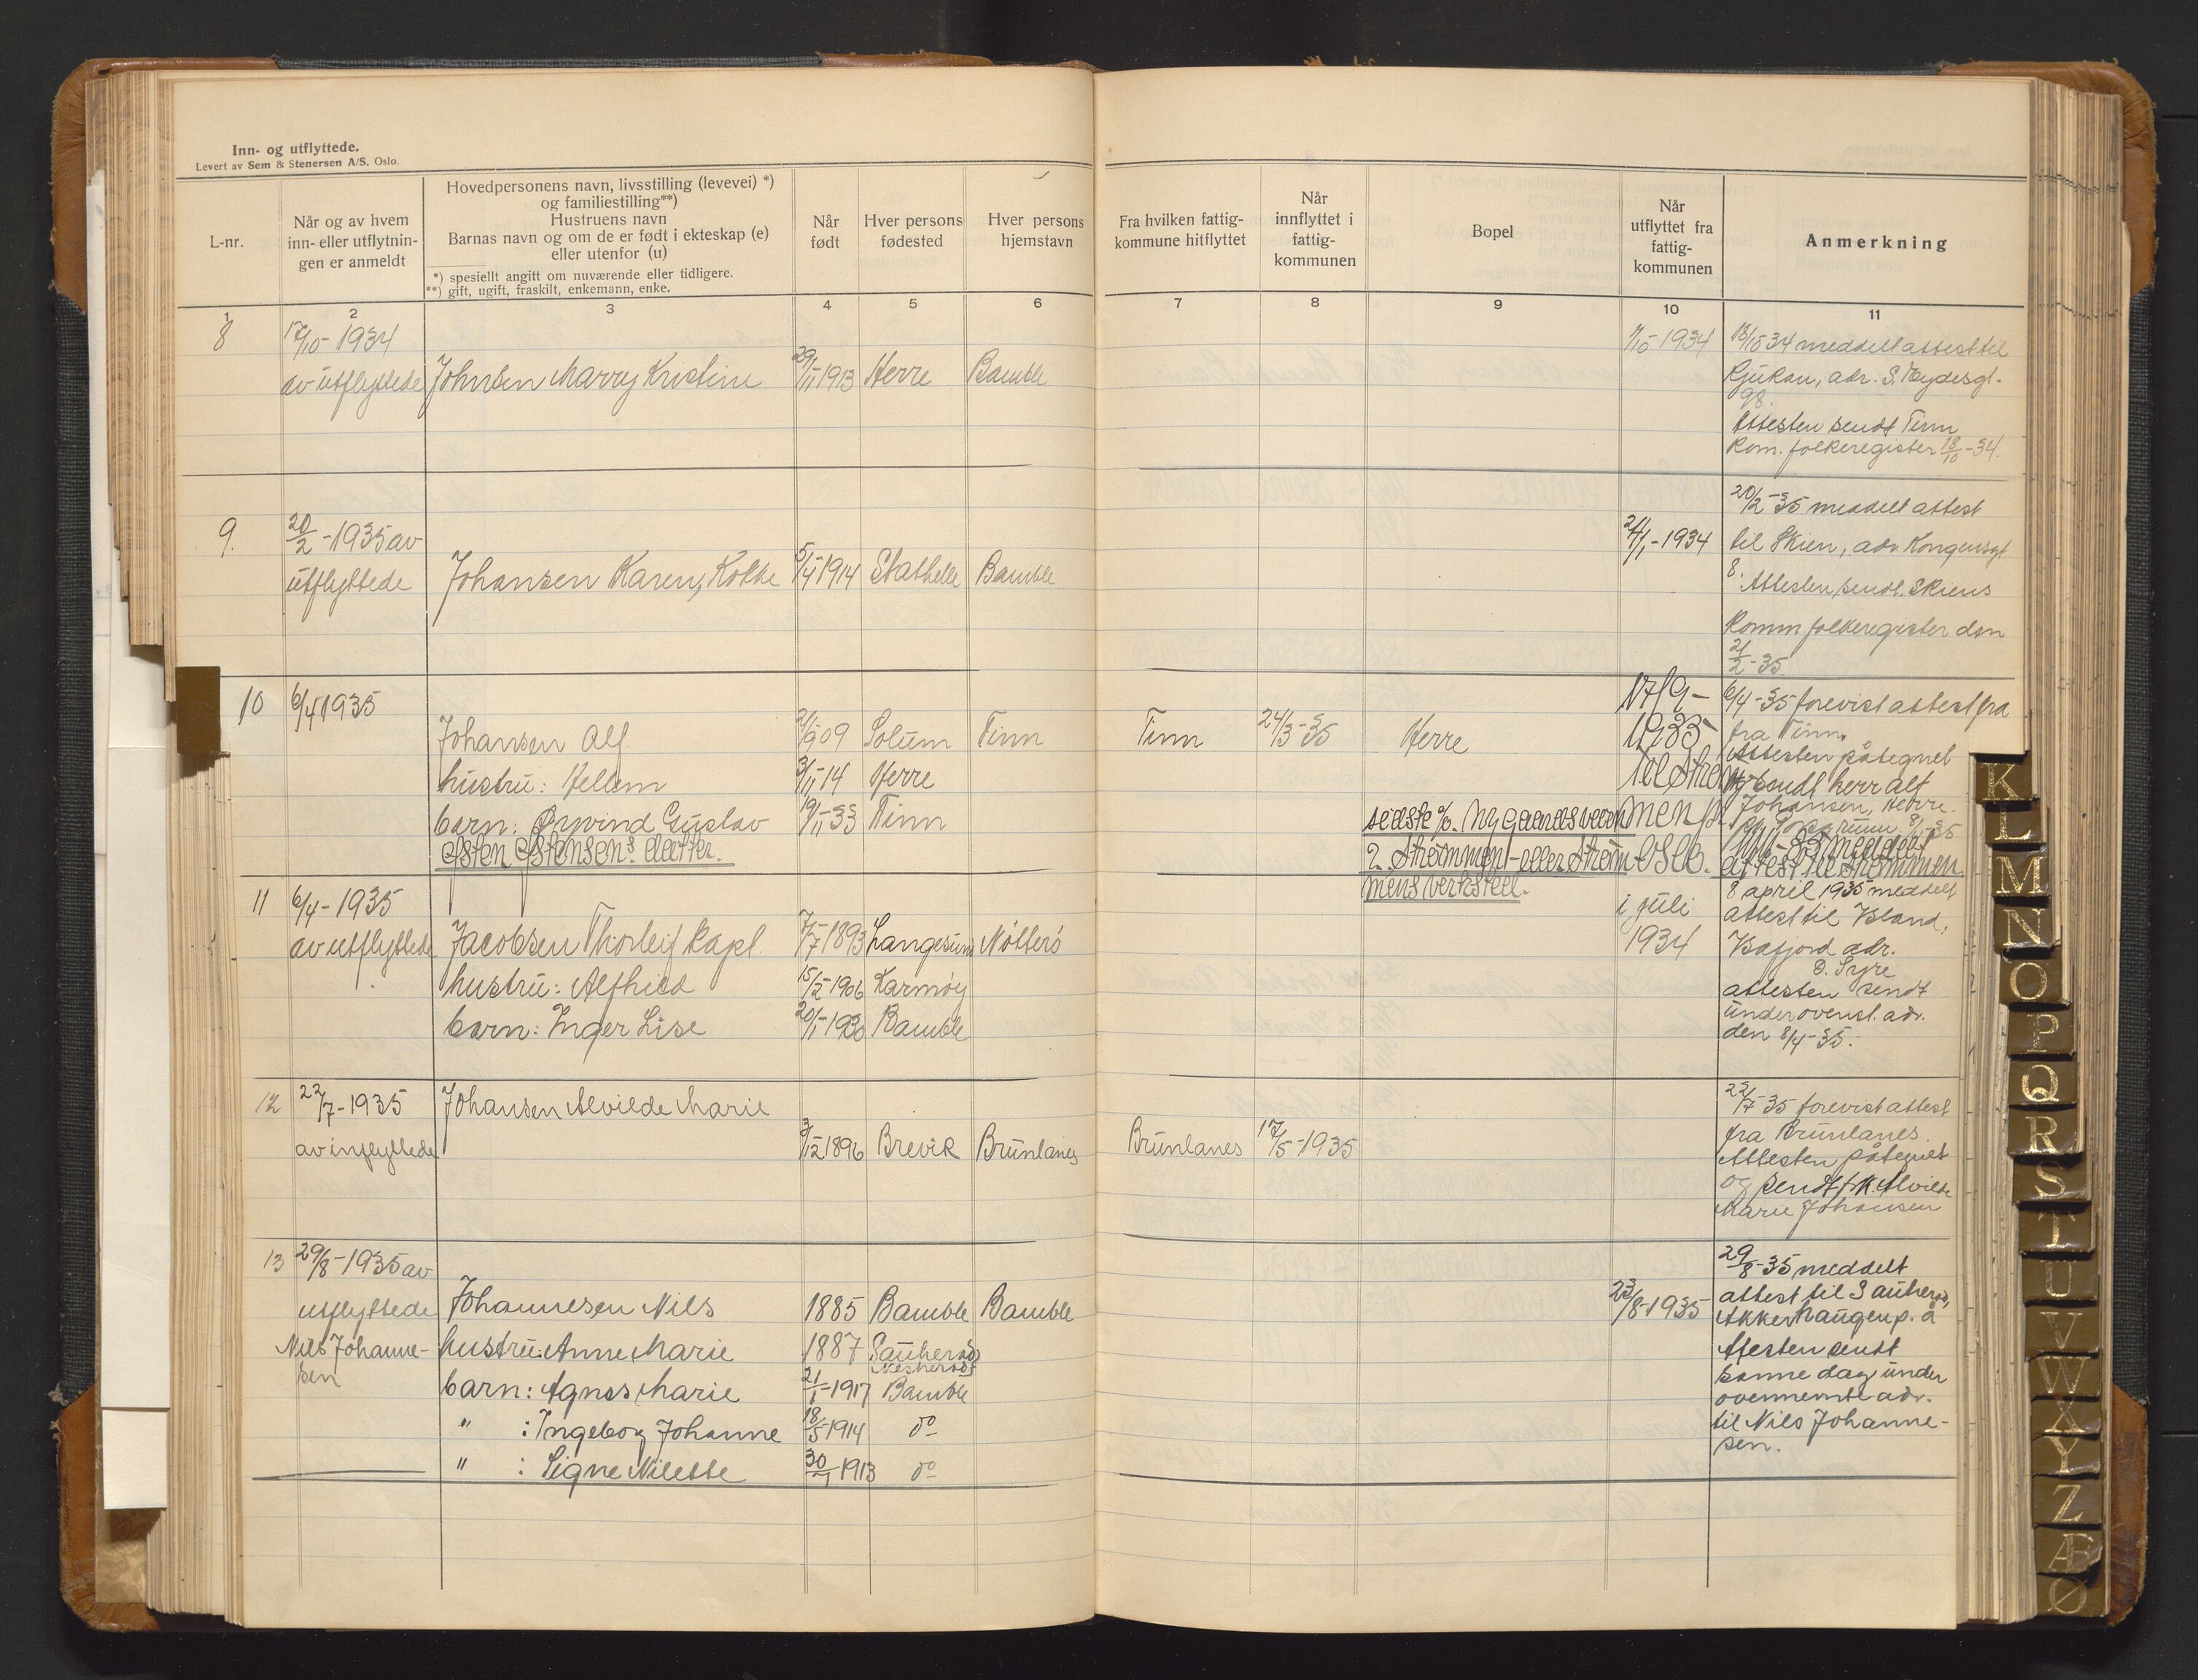 Inn- og utflyttede.
Levert av Sem & Stenersen A/S. Oslo.
L-nr.
Når og av hvem
inn- eller utflytnin-
gen er anmeldt
Hovedpersonens navn, livsstilling (levevei) *)
og familiestilling**)
Hustruens navn
Barnas navn og om de er født i ekteskap (e)
eller utenfor (u)
*) spesiellt angitt om nuværende eller tidligere.
**) gift, ugift, fraskilt, enkemann, enke.
Når
født
Hver persons
fødested
Hver persons
hjemstavn
Fra hvilken fattig-
kommune hitflyttet
Når
innflyttet i
fattig-
kommunen
Bopel
Når
utflyttet fra
fattig-
kommunen
Anmerkning
1 2 3 4 5 6 7 8 9 10 11
8 17/10-1934
av utflyttede Johnsen Marry Kristine 29/11 1913 Herre Bamble
1/10-1934
18/10 34 meddelt attest til
Rjukan, adr. S. Heydesgt.
98.
Attesten sendt Tinn
Kom. folkeregister 18/10-34.
9. 20/2-1935 av
utflyttede Johansen Karen, Kokke 5/4 1914 Stathelle Bamble
24/1-1934
20/2-35 meddelt attest
til Skien, adr. Kongensgt
8.
Attesten sendt Skiens
Komm folkeregister den
21/2-35
10 6/4 1935
Johansen Alf 2/9 09 Solum Tinn Tinn 24/3-35 Herre
hustru: Hellem 3/11-14 Herre
barn: Øyvind Gustav 19/11-33 Tinn
Østen Østensen's datter.
sidste %. Nygaardsveien
2 Strømmen - eller Strøm-
mens verksted.
17/9-
1935
til Strøm
men pr
Oslo.
6/4-35 forevist attest fra
fra Tinn.
Attesten påtegnet
og sendt herr Alf
Johansen, Herre.
attest til Strømmen.
11 6/4-1935
av utflyttede Jacobsen Thorleif kapt. 7/7-1893 Langesund Nøtterø
hustru: Alfhild 15/2-1906 Karmøy
barn: Inger Lise 20/1-1930 Bamble
i juli
1934
8 april 1935 meddelt
attest til Island,
Isafjord adr.
attesten sendt
under ovenst. adr.
den 8/4-35.
12 22/7-1935 Johansen Alvilde Marie
av innflyttede 3/12 1896 Brevik Brunlanes Brunlanes 17/5-1935
22/7-35 forevist attest
fra Brunlanes.
Attesten påtegnet
og sendt frk. Alvilde
Marie Johansen
13 29/8-1935 av
utflyttede Johannesen Nils 1885 Bamble Bamble
Nils Johanne- hustru: Anne Marie 1887 Sauherad
sen Nesherad
barn: Agnes Marie 21/1-1917 Bamble
" : Ingeborg Johanne 18/5 1914 do
" : Signe Nilette 30/1 1913 do
23/8-1935
29/8-35 meddelt
attest til Sauherad,
Akkerhaugen p. å
Attesten sendt
samme dag under
ovennevnte adr.
til Nils Johanne-
sen.
K
L
M
N
O
P
Q
R
S
T
U
V
W
X
Y
Z
Æ
Ø